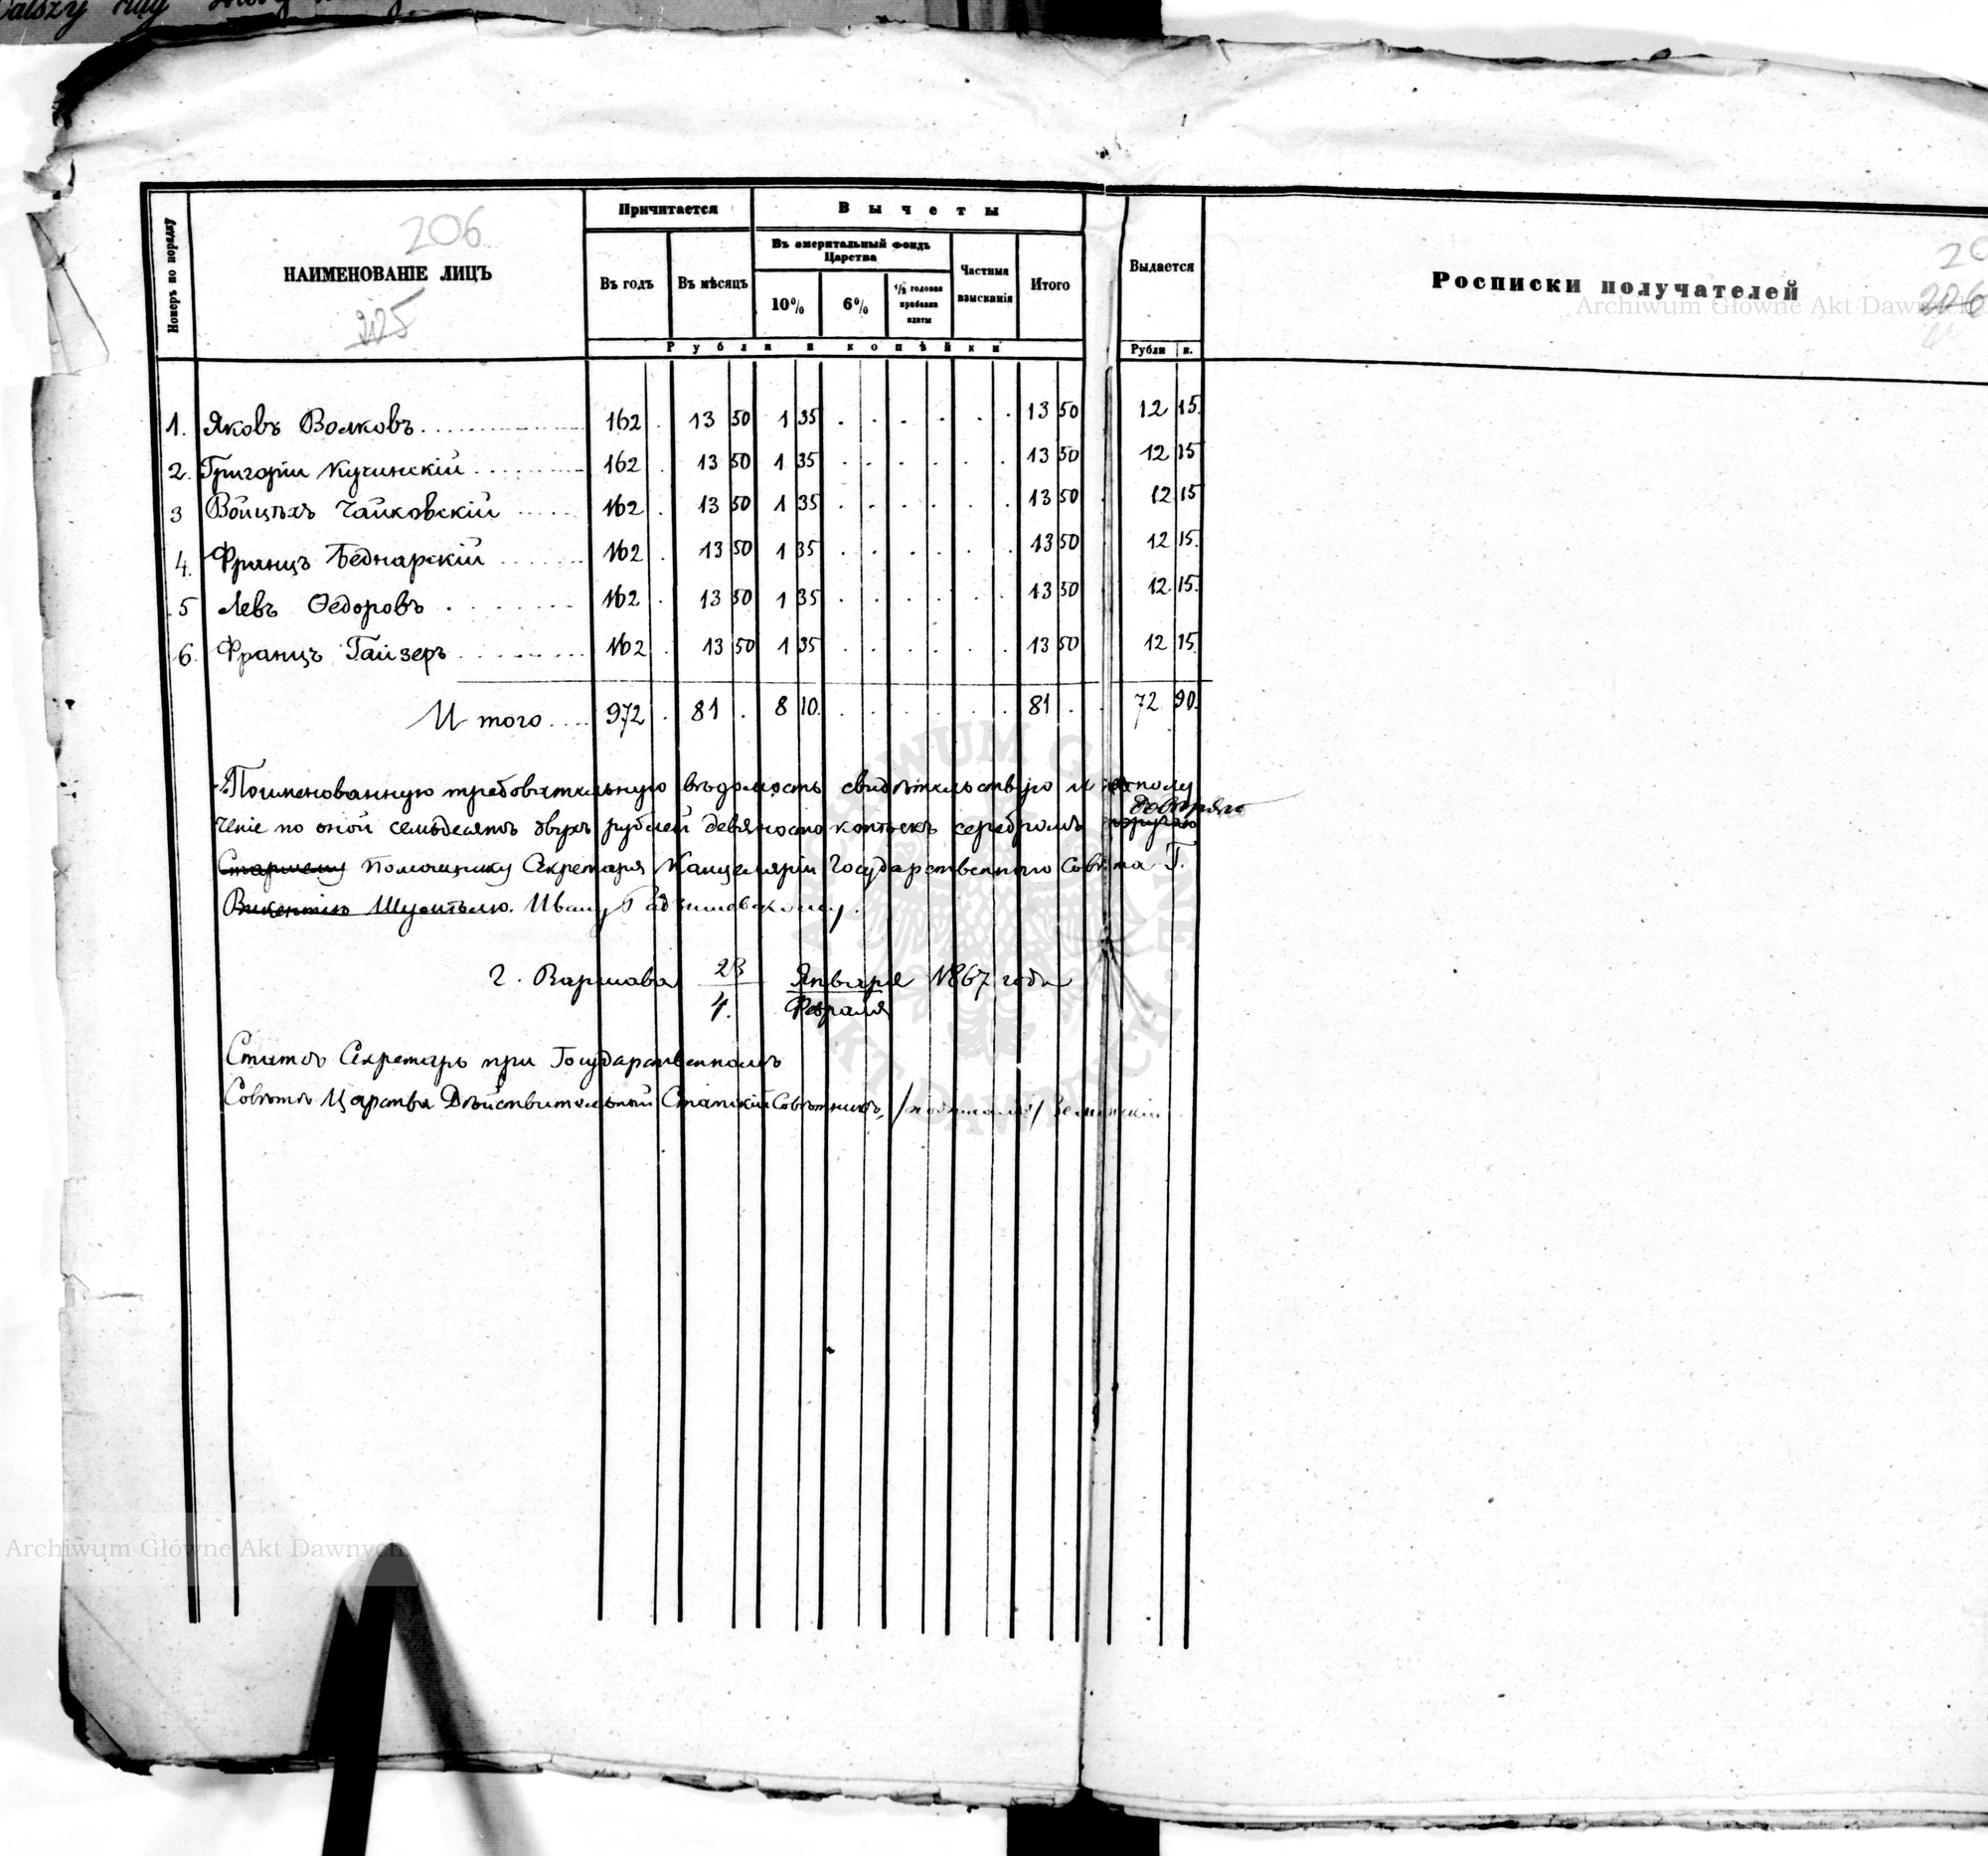 206
225
Номеръ по порядку
НАИМЕНОВАНІЕ ЛИЦЪ
Причитается
Вычеты
Въ годъ
Въ мѣсяцъ
Въ емеритальный фондъ Царства
10%
6%
1/2 годовая прибавки платы
Частныя взысканія
Итого
Выдается
Росписки получателей
Рубли и копѣйки
Рубли к.
1. Яковъ Волковъ 162 . 13 50 1 35 . . . . . . 13 50 12 15.
2. Григорій Кучинскій 162 . 13 50 1 35 . . . . . . 13 50 12 15
3 Войцѣхъ Чайковскій 162 . 13 50 1 35 . . . . . . 13 50 12 15
4. Францъ Беднарскій 162 . 13 50 1 35 . . . . . . 13 50 12 15.
5 Левъ Ѳедоровъ 162 . 13 50 1 35 . . . . . . 13 50 12 15.
6. Францъ Гайзеръ 162 . 13 50 1 35 . . . . . . 13 50 12 15.
Итого 972 . 81 . 8 10. . . . . . . 81 . 72 90.
Поименованную требовательную вѣдомость свидѣтельствую и полу
довѣряю
ченіе по оной семьдесятъ двухъ рублей девяносто копѣекъ серебромъ поручаю
Старшему Помощнику Секретаря Канцеляріи Государственного Совѣта Г.
Викентію Ивану
г. Варшава 23 Января 1867 года
4. Февраля
Статсъ Секретарь при Государственномъ
Совѣтѣ Царства Дѣйствительный Статскій Совѣтникъ, /подписалъ/
Archiwum Główne Akt Dawnych
Archiwum Główne Akt Dawnych